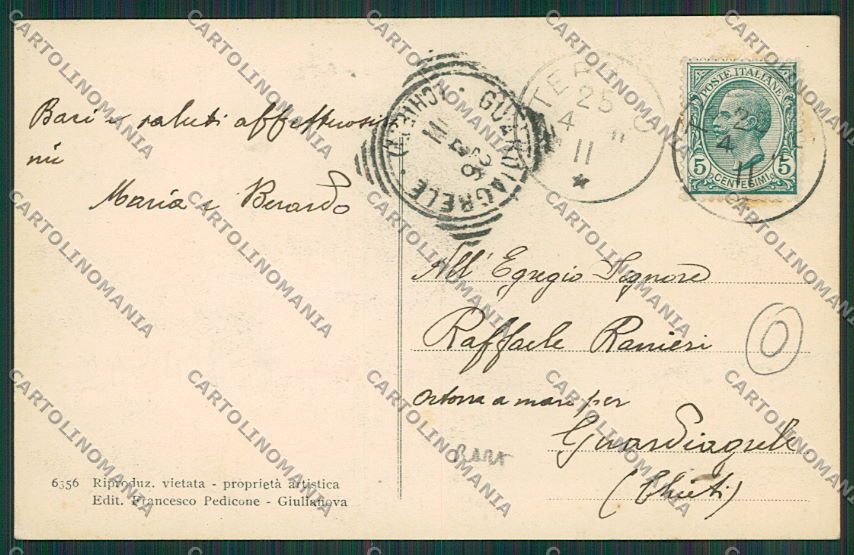 Baci e saluti affettuosissi
mi
Maria e Berardo
GUARDIAGRELE (CHIETI)
26 4 11
TERAMO
25
4 11
11
POSTE ITALIANE
5 5
CENTESIMI
25
4
11
All' Egregio Signore
Raffaele Ranieri
Ortona a mare per
Guardiagrele
(Chieti)
6356 Riproduz. vietata - proprietà artistica
Edit. Francesco Pedicone - Giulianova
CARTOLINOMANIA